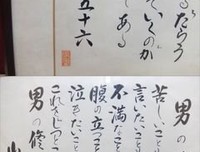 るだらう
ていくのが
である
五十六
男の
苦しいこと
言いたいこと
不満なこと
腹の立つこ
泣きたいこと
これらをじっとこ
男の修
山